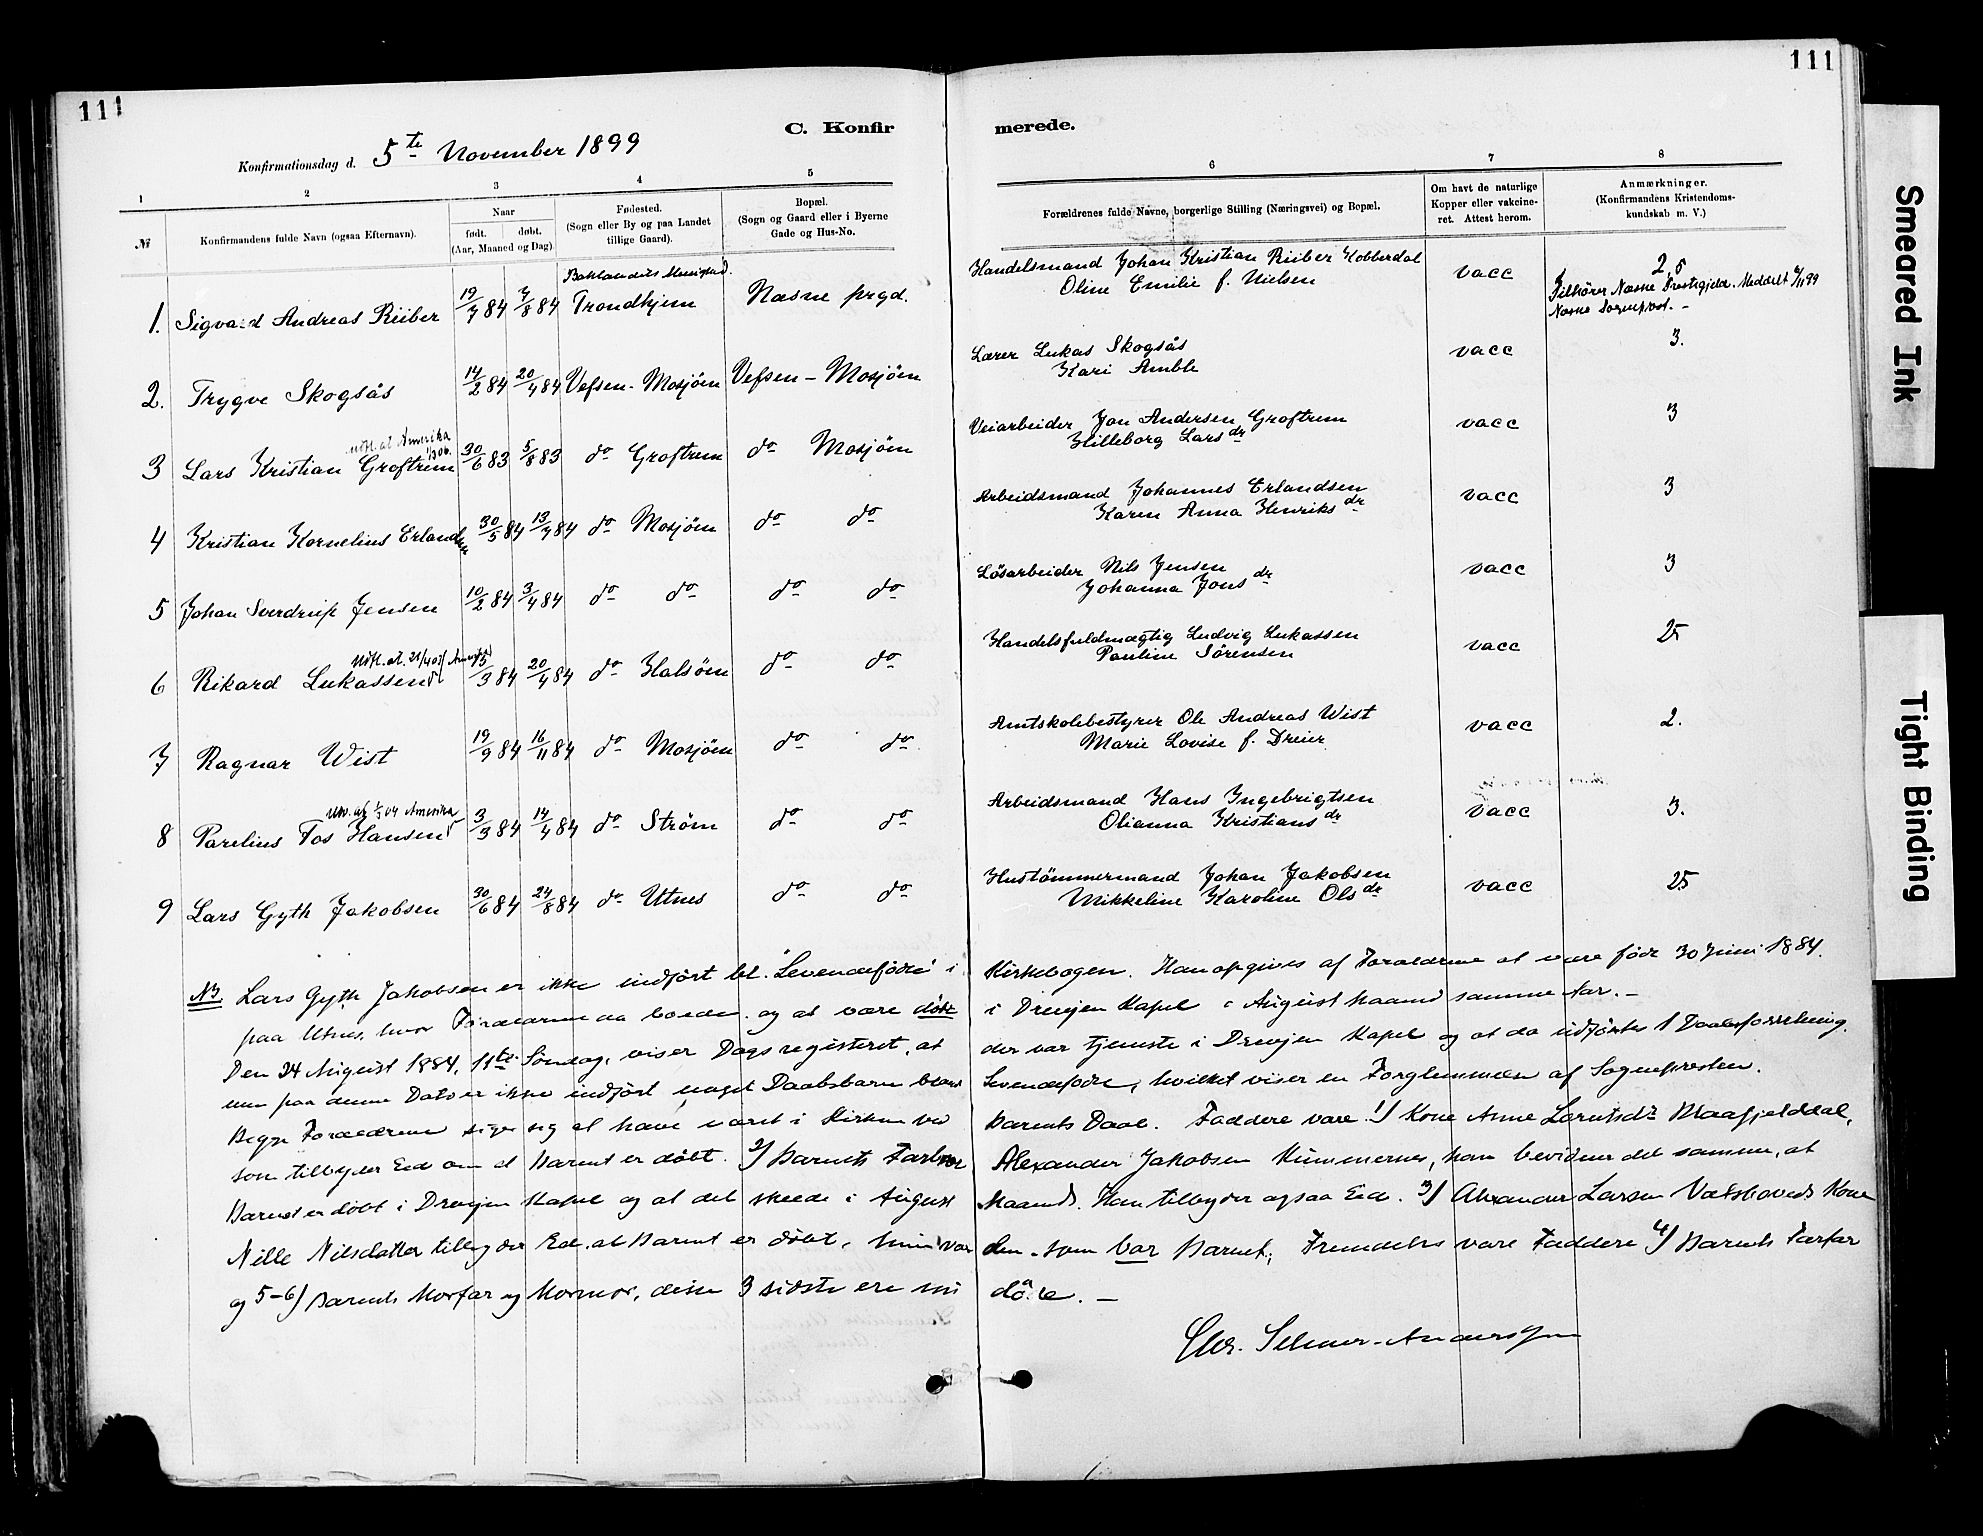 111
111
C. Konfirmerede.
Konfirmationsdag d. 5te November 1899
1 2 3 4 5 6 7 8
№
Konfirmandens fulde Navn (ogsaa Efternavn).
Naar
født. døbt.
(Aar, Maaned og Dag)
Fødested.
(Sogn eller By og paa Landet
tillige Gaard).
Bopæl.
(Sogn og Gaard eller i Byerne
Gade og Hus-No.
Forældrenes fulde Navne, borgerlige Stilling (Næringsvei) og Bopæl.
Om havt de naturlige
Kopper eller vakcine-
ret. Attest herom.
Anmærkninger.
(Konfirmandens Kristendoms-
kundskab m. V.)
Baklandets Menighed.
1. Sigvard Andreas Riiber 19/7 84 7/8 84 Trondhjem Næsne prgd. Handelsmand Johan Kristian Riiber Kobberdal
Oline Emilie f. Nielsen vacc 2,5
Tilhører Næsne Prestegjeld. Meddelt 6/11 99
Næsne Sogneprest. -
2. Trygve Skogsås 14/2 84 20/4 84 Vefsen - Mosjöen Vefsen - Mosjöen Lærer Lukas Skogsås
Kari Amble vacc 3.
udfl. at. Amerika
3 Lars Kristian Groftrem 30/6 83 5/8 83 do Groftrem do Mosjöen Veiarbeider Jon Andersen Groftrem
Hilleborg Larsdr vacc 3
4 Kristian Kornelius Erlandsen 30/5 84 13/7 84 do Mosjöen do do Arbeidsmand Johannes Erlandsen
Karen Anna Henriksdr vacc 3
5 Johan Sverdrup Jensen 10/2 84 3/4 84 do do do do Lösarbeider Nils Jensen
Johanna Jonsdr vacc 3
Udfl. at. 21/4 05
6 Rikard Lukassen 5/3 84 20/4 84 do Halsöen do do Handelsfuldmægtig Ludvig Lukassen
Pauline Sörensen vacc 25
7 Ragnar Wist 19/9 84 16/11 84 do Mosjöen do do Amtskolebestyrer Ole Andreas Wist
Marie Lovise f. Dreier vacc 2.
Utv. at 1/3 04 Amerika
8 Parelius Fos Hansen 3/3 84 14/4 84 do Ström do do Arbeidsmand Hans Ingebrigtsen
Olianna Kristiansdr vacc 3.
9 Lars Gyth Jakobsen 30/6 84 24/8 84 do Utnes do do Hustömmermand Johan Jakobsen
Mikkeline Karoline Olsdr vacc 25
NB. Lars Gyth Jakobsen er ikke indført bl. "Levendefödte" i Kirkebogen. Han opgives af Forældrene at være født 30 Juni 1884
paa Utnes, hvor Forældrene da boede og at være döbt i Drevjen Kapel i August Maaned samme Aar. -
Den 24 August 1884, 11te Söndag, viser Dagsregisteret, at der var tjeneste i Drevjen Kapel og at da udførtes 1 Daabsforretning.
men paa denne Dato er ikke indført noget Daabsbarn blandt Levendefödte, hvilket viser en Forglemmelse af Sognepresten.
Begge Forældrene siger sig at have været i Kirken ved Barnets Daab. Faddere vare 1) Kone Anne Larentsdr Blaafjelddal,
som tilbyder Eed om at Barnet er döbt. 2) Barnets Farbror Alexander Jakobsen Kummernes, han bevidner det samme, at
Barnet er döbt i Drevjen Kapel og at det skeede i August Maaned. Han tilbyder ogsaa Eed. 3) Alexander Larsen Vatshoveds Kone
Nille Nilsdatter tilbyder Ed, at Barnet er döbt, hun var den, som bar Barnet; Fremdeles vare Faddere 4) Barnets Farfar
og 5-6) Barnets Morfar og Mormor, disse 3 sidste ere nu döde. -
Chr. Selmer-Anderssen
Smeared Ink
Tight Binding